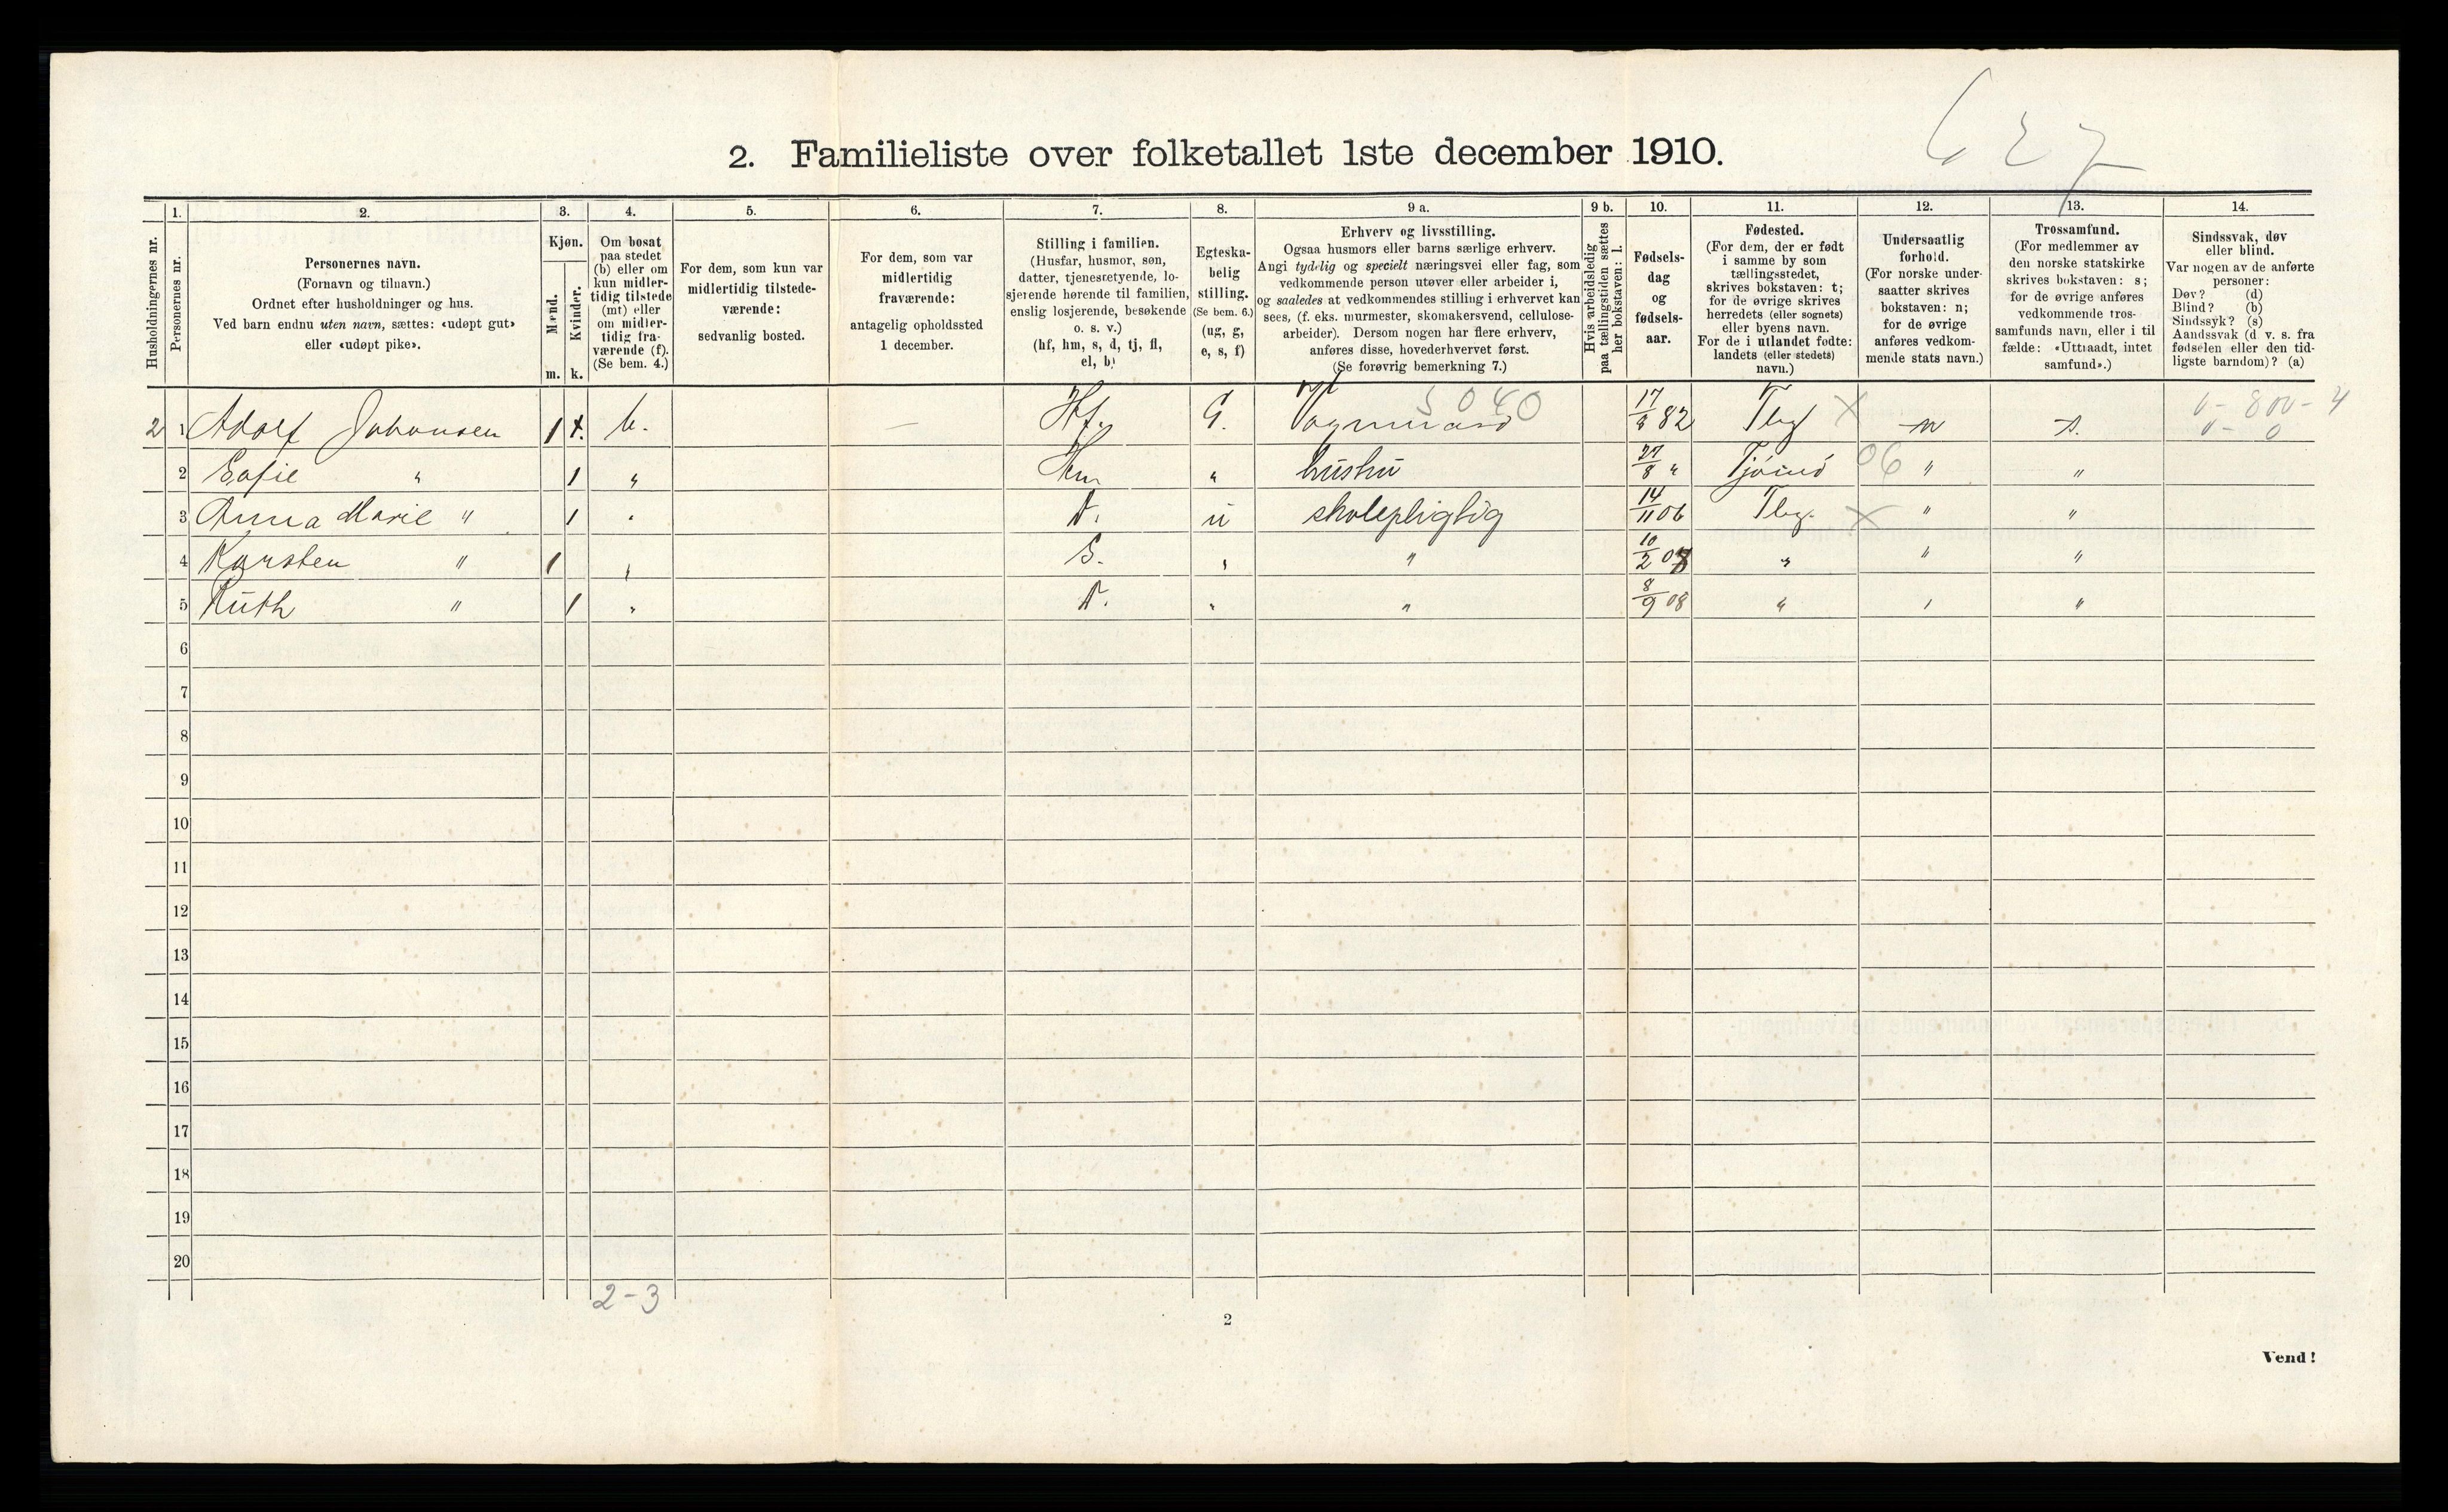 627
2. Familieliste over folketallet 1ste december 1910.
Husholdningernes nr.
1. Personernes nr.
2. Personernes navn.
(Fornavn og tilnavn.)
Ordnet efter husholdninger og hus.
Ved barn endnu uten navn, sættes: «udøpt gut»
eller «udøpt pike».
3. Kjøn.
Mænd. m.
Kvinder. k.
4. Om bosat
paa stedet
(b) eller om
kun midler-
tidig tilstede
(mt) eller
om midler-
tidig fra-
værende (f).
(Se bem. 4.)
5. For dem, som kun var
midlertidig tilstede-
værende:
sedvanlig bosted.
6. For dem, som var
midlertidig
fraværende:
antagelig opholdssted
1 december.
7. Stilling i familien.
(Husfar, husmor, søn,
datter, tjenestetyende, lo-
sjerende hørende til familien,
enslig losjerende, besøkende
o. s. v.)
(hf, hm, s, d, tj, fl,
el, b)
8. Egteska-
belig
stilling.
(Se bem. 6.)
(ug, g,
e, s, f)
9 a. Erhverv og livsstilling.
Ogsaa husmors eller barns særlige erhverv.
Angi tydelig og specielt næringsvei eller fag, som
vedkommende person utøver eller arbeider i,
og saaledes at vedkommendes stilling i erhvervet kan
sees, (f. eks. murmester, skomakersvend, cellulose-
arbeider). Dersom nogen har flere erhverv,
anføres disse, hovederhvervet først.
(Se forøvrig bemerkning 7.)
9 b. Hvis arbeidsledig
paa tællingstiden sættes
her bokstaven: l.
10. Fødsels-
dag
og
fødsels-
aar.
11. Fødested.
(For dem, der er født
i samme by som
tællingsstedet,
skrives bokstaven: t;
for de øvrige skrives
herredets (eller sognets)
eller byens navn.
For de i utlandet fødte:
landets (eller stedets)
navn.)
12. Undersaatlig
forhold.
(For norske under-
saatter skrives
bokstaven: n;
for de øvrige
anføres vedkom-
mende stats navn.)
13. Trossamfund.
(For medlemmer av
den norske statskirke
skrives bokstaven: s;
for de øvrige anføres
vedkommende tros-
samfunds navn, eller i til
fælde: «Uttraadt, intet
samfund».)
14. Sindssvak, døv
eller blind.
Var nogen av de anførte
personer:
Døv? (d)
Blind? (b)
Sindssyk? (s)
Aandssvak (d v. s. fra
fødselen eller den tid-
ligste barndom)? (a)
2 1 Adolf Johansen 1 b. Hf. G. 5040 82 Tbg X n s.
2 Sofie " 1 " Hm " hushu 27/8 " Tjømø 06 " "
3 Anna Marie " 1 " D. u skolepligtig 14/11 06 Tbg. X " "
4 Karsten " 1 " S. " " 10/2 " " "
5 Ruth " 1 " D. " " 8/9 08 " " "
6
7
8
9
10
11
12
13
14
15
16
17
18
19
20
2-3
2
Vend!